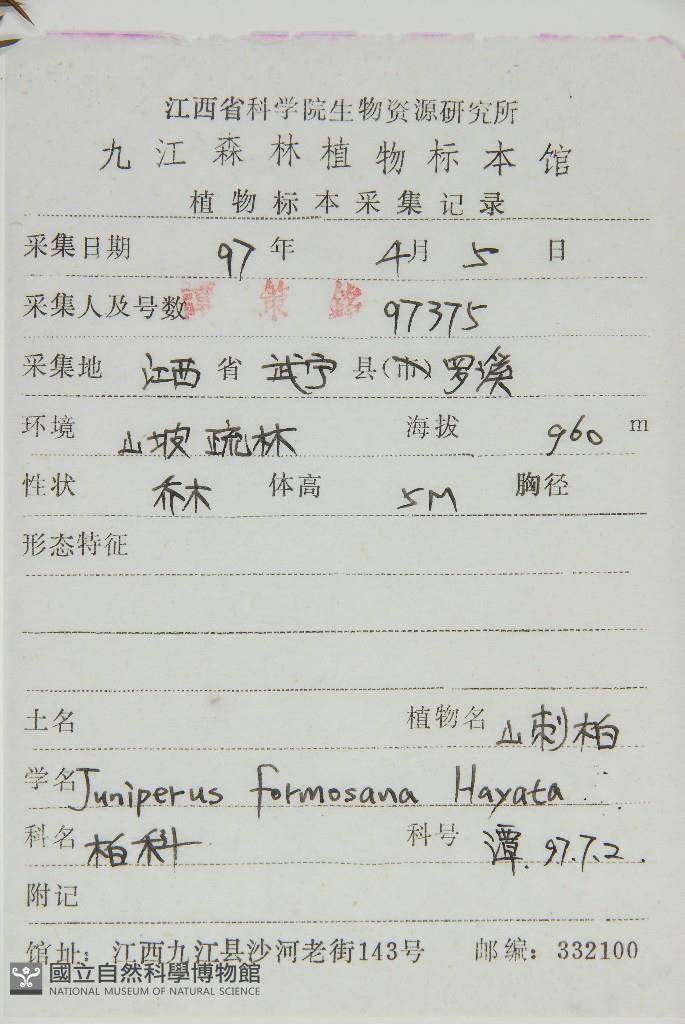 江西省科学院生物资源研究所
九江森林植物标本馆
植物标本采集记录
采集日期 97年 4月 5 日
采集人及号数 譚策銘 97375
采集地 江西 省 武宁 县(市) 罗溪
环境 山坡疏林 海拔 960 m
性状 乔木 体高 5M 胸径
形态特征
土名 植物名 山刺柏
学名 Juniperus formosana Hayata
科名 柏科 科号 潭. 97.7.2.
附记
馆址: 江西九江县沙河老街143号 邮编: 332100
國立自然科學博物館
NATIONAL MUSEUM OF NATURAL SCIENCE